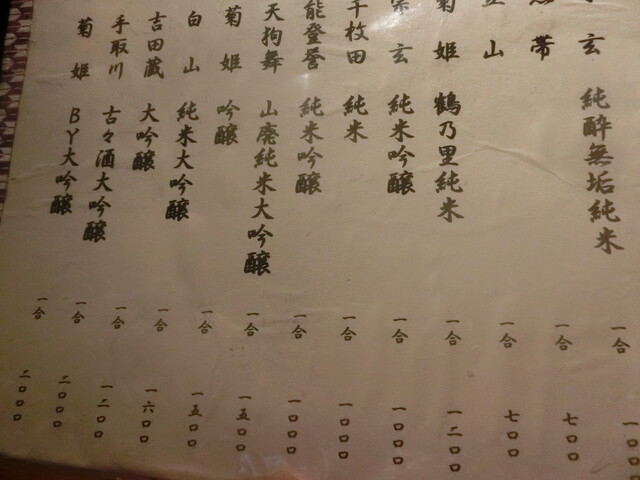 玄 純酔無垢純米 一合 一〇〇〇
帯 一合 七〇〇
山 一合 七〇〇
菊姫 鶴乃里純米 一合 一二〇〇
宗玄 純米吟醸 一合 一〇〇〇
千枚田 純米 一合 一〇〇〇
能登誉 純米吟醸 一合 一〇〇〇
天狗舞 山廃純米大吟醸 一合 一五〇〇
菊姫 吟醸 一合 一五〇〇
白山 純米大吟醸 一合 一六〇〇
吉田蔵 大吟醸 一合 一二〇〇
手取川 古々酒大吟醸 一合 二〇〇〇
菊姫 BY大吟醸 一合 二〇〇〇